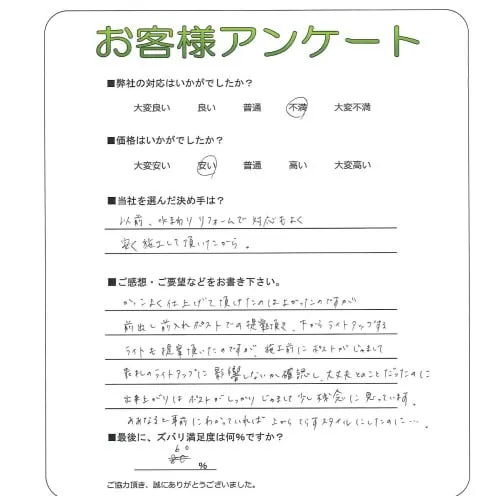 お客様アンケート
■弊社の対応はいかがでしたか？
大変良い 良い 普通 不満 大変不満
■価格はいかがでしたか？
大変安い 安い 普通 高い 大変高い
■当社を選んだ決め手は？
以前、水まわりリフォームで対応もよく
安く施工して頂いたから。
■ご感想・ご要望などをお書き下さい。
かっこよく仕上げて頂けたのは よかったのですが
前出し前入れポストでの提案頂き、下からライトアップする
ライトを提案頂いたのですが、施工前にポストがじゃまして
表札のライトアップに影響しないか確認し、大丈夫とのことだったのに
出来上がりは ポストがしっかりじゃまして少し残念に思っています。
ああなると事前にわかっていれば上からてらすスタイルにしたのに…。
■最後に、ズバリ満足度は何％ですか？
60
％
ご協力頂き、誠にありがとうございました。